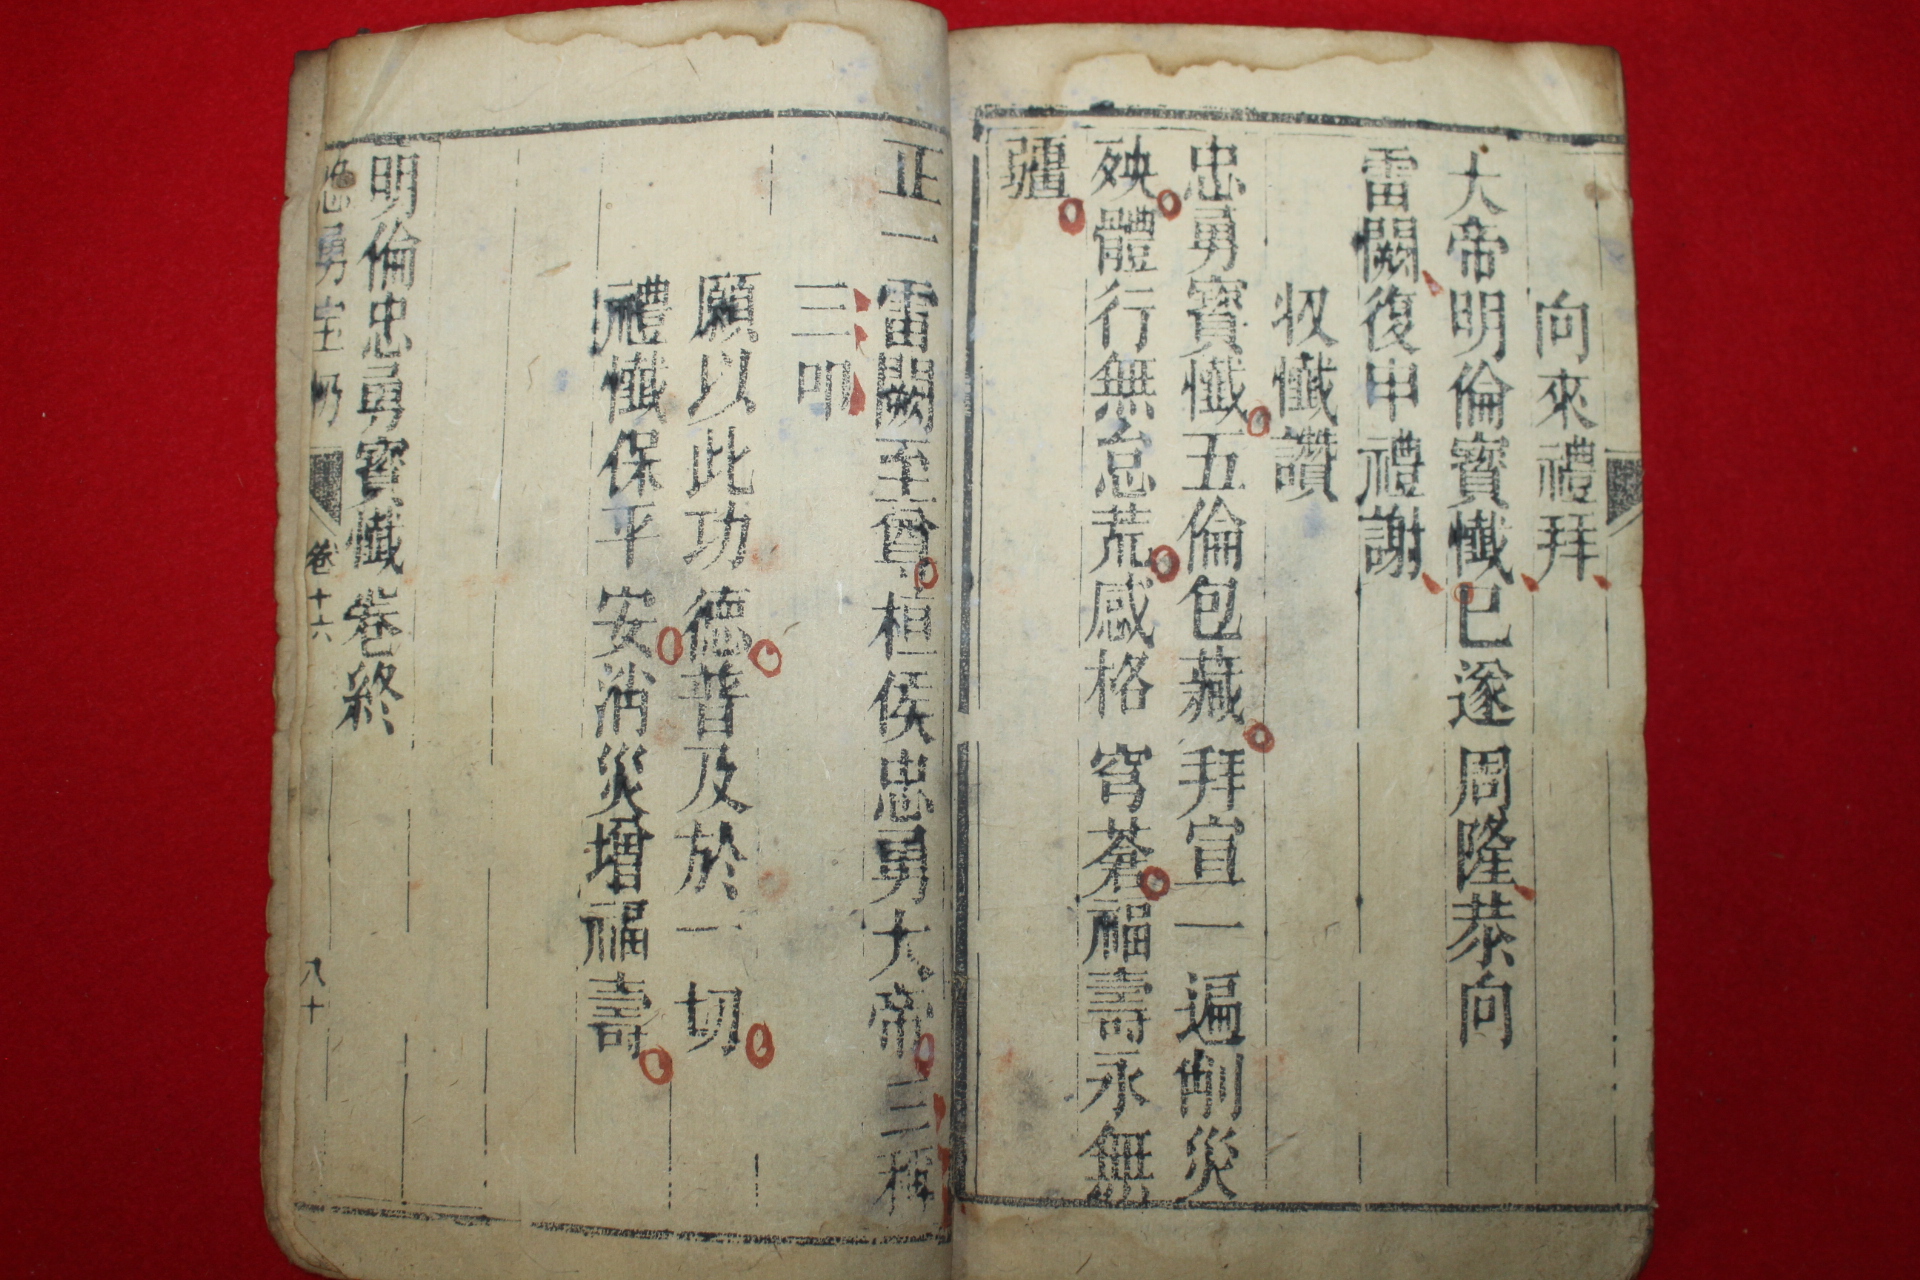 向來禮拜
大帝明倫寳懺已遂周隆恭向
雷闕復申禮謝
收懺讚
忠勇寳懺五倫包藏拜宣一遍削災
殃體行無怠荒感格穹蒼福壽永無
疆
正一雷闕至尊桓侯忠勇大帝三稱
三叩
願以此功德普及於一切
禮懺保平安消災增福壽
明倫忠勇寳懺卷終
忠勇宝忏
卷十六
八十